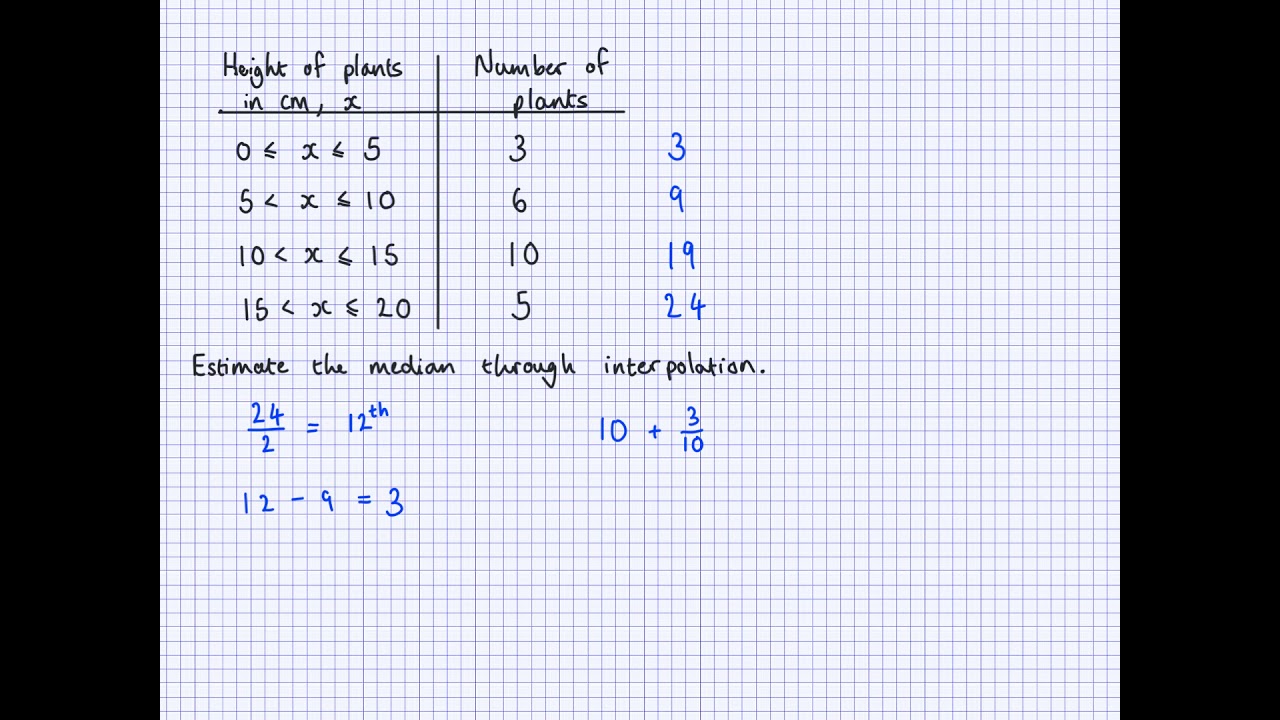 Height of plants Number of
in cm, x plants
0 ⩽ x ⩽ 5 3 3
5 < x ⩽ 10 6 9
10 < x ⩽ 15 10 19
15 < x ⩽ 20 5 24
Estimate the median through interpolation.
24/2 = 12th 10 + 3/10
12 - 9 = 3